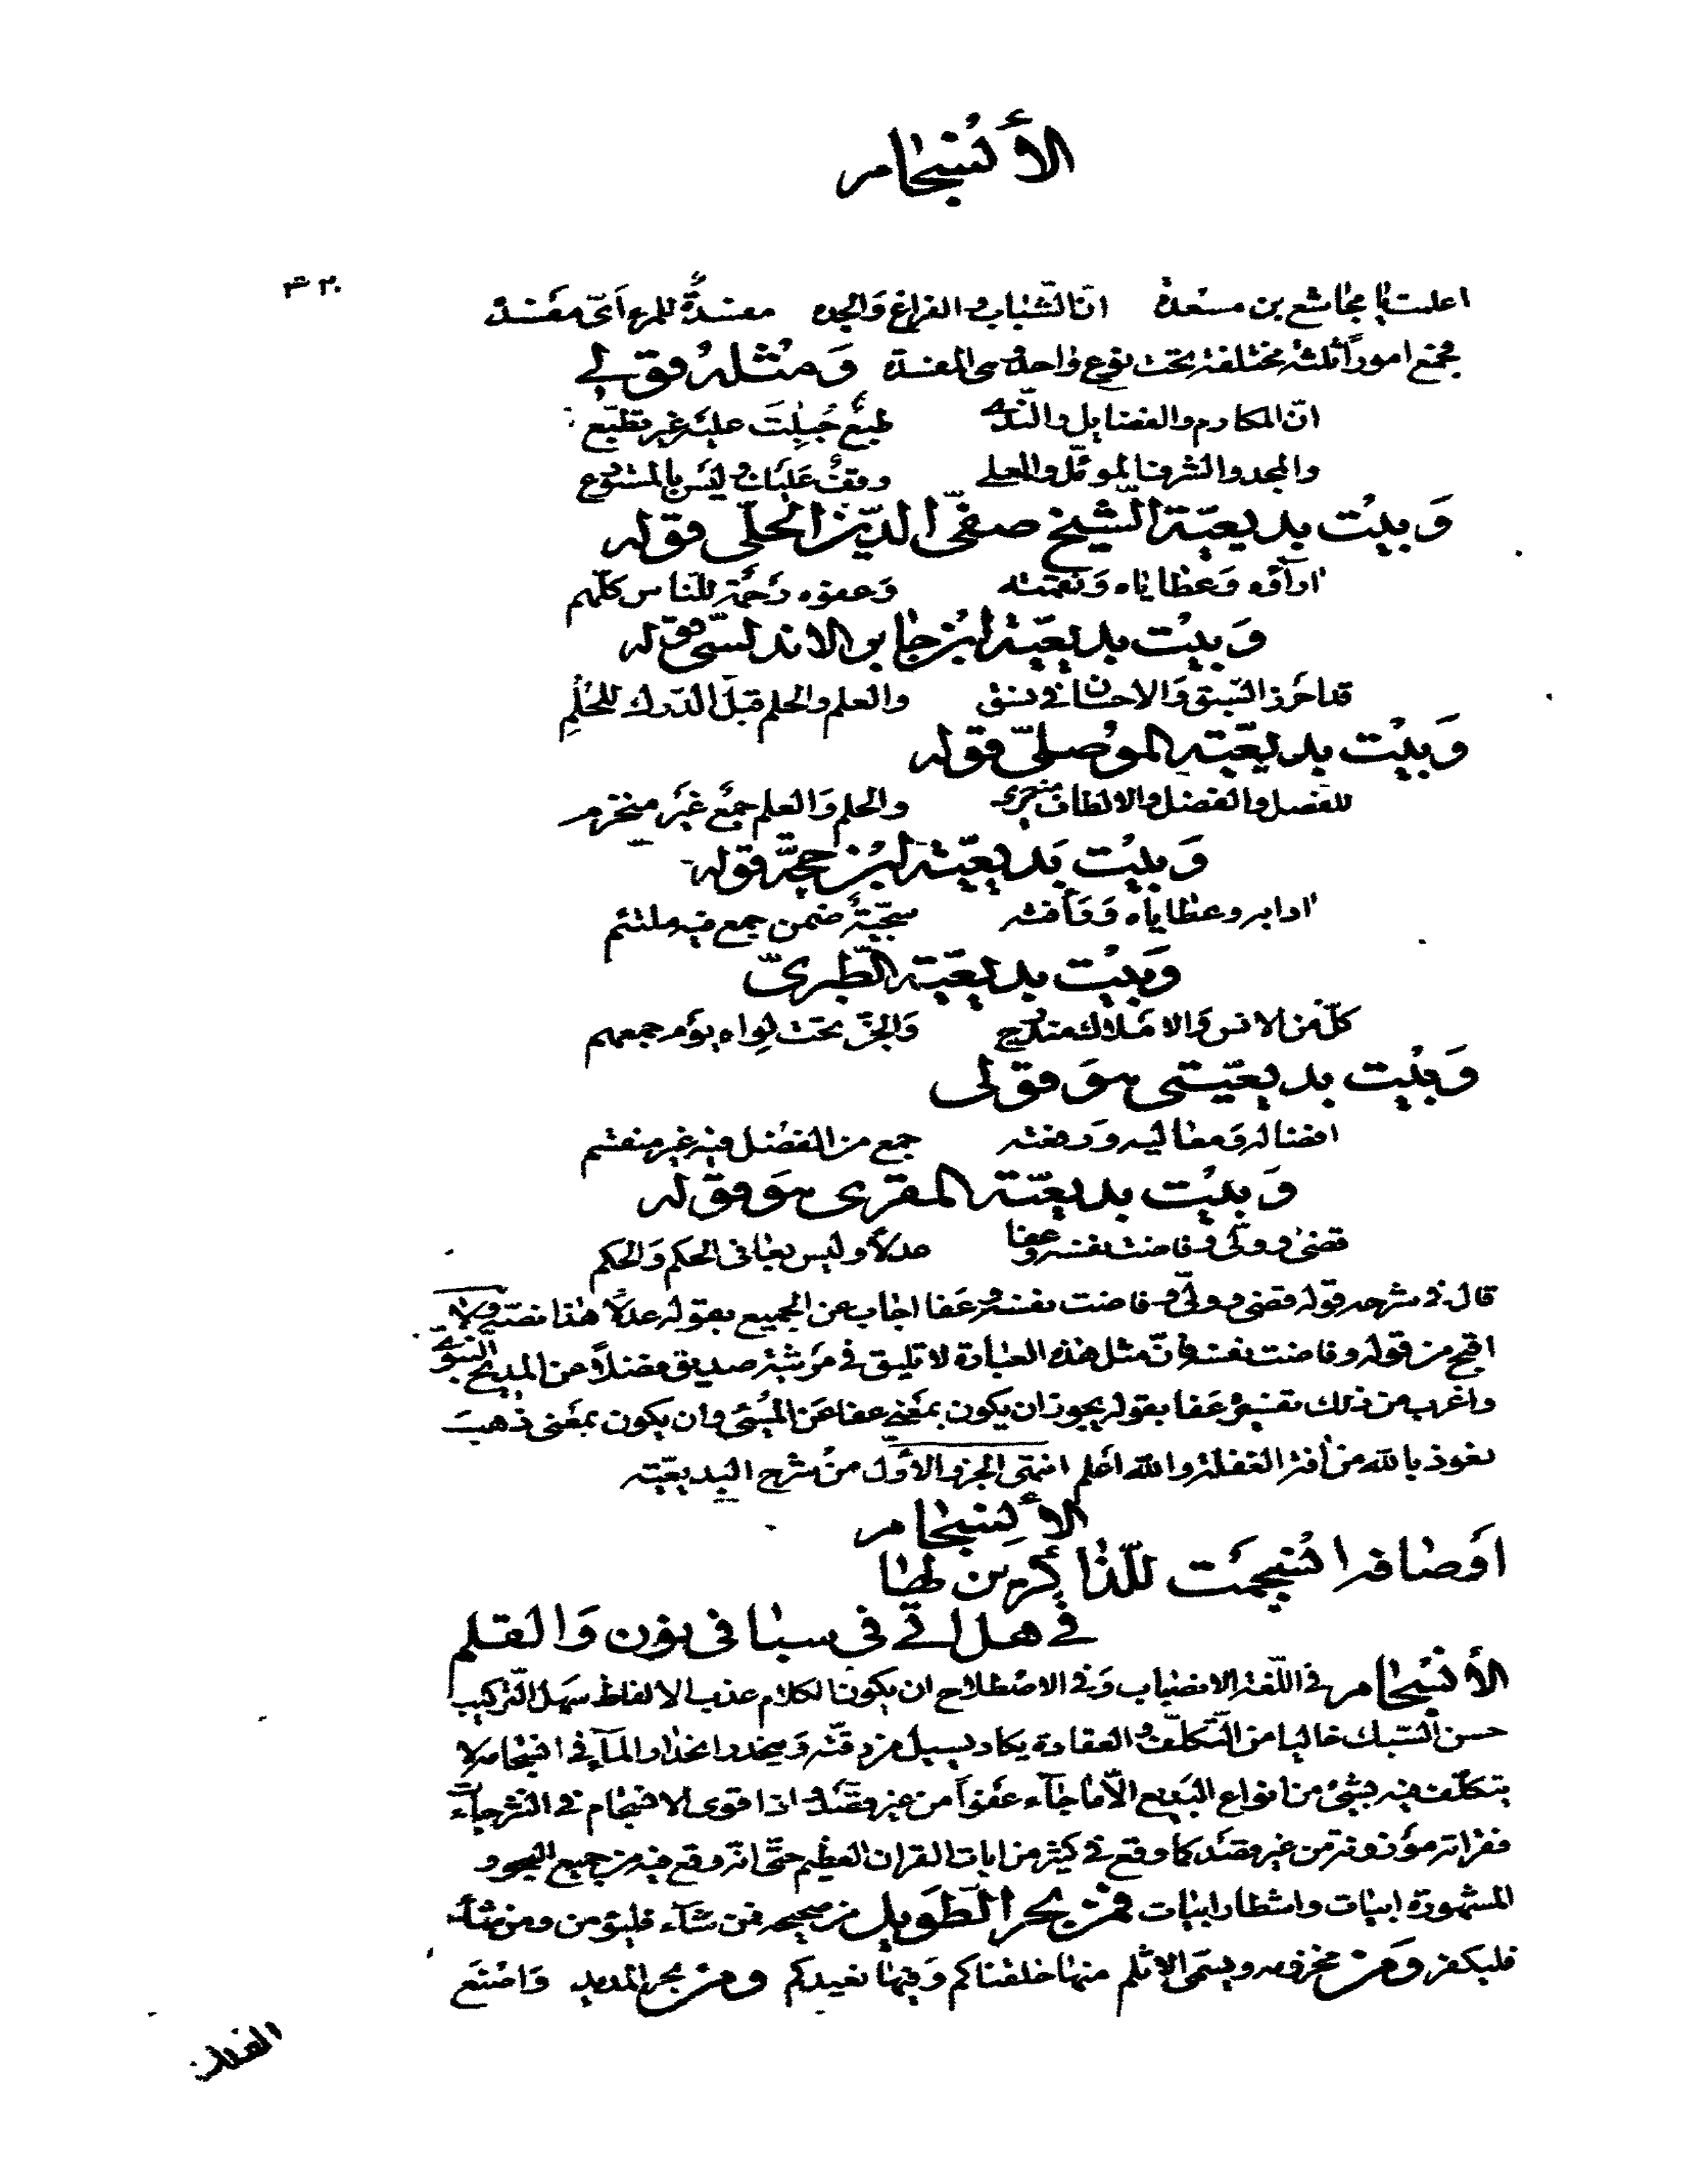 الأنسجام
٣٢٠
اعلمت يا مجاشع بن مسعدة انّ الشّباب والفراغ والجده مفسدةٌ للمرء اَىّ مفسده
فجمع اموراً ثلثة مختلفة تحت نوع واحد وهى المفسدة وَمثله قولى
انّ المكارم والفضايل والنّدى طبعٌ جُبِلتَ عليه غير تطبّع
والمجد والشرف الموثّل والعلى وقفٌ عليك وليس بالمتنوّع
وَبيت بديعيّة الشّيخ صفىّ الدّين الحلّى قوله
اراۤؤه وَعطاياه وَنعمته وَعفوه رَحمة للنّاس كلّهم
وَبيت بديعيّة ابن جابر الاندلسىّ قوله
قد احرز السّبق وَالاحسان فى نسق والعلم والحلم قبل الدّرك للحُلُمِ
وَبيت بديعيّة الموصلىّ قوله
للفصل والفضل والالطاف منه يرى والحلم وَالعلم جمعٌ غَير منخرم
وَبيت بَديعيّة ابن حجّة قوله
ادابه وعطاياه وَرَأفته سجيّةٌ ضمن جمع فيه ملتئم
وَبيت بديعيّة الطّبرىّ
كلّ من الانس وَالاملاك مندرج وَالجنّ تحت لواه يوم جمعهم
وَبيت بديعيّتى هوَ قولى
افضاله وَمعاليه وَرفعته جمع من الفضل فيه غير منقسم
وَبيت بديعيّة المقرى هوَ قوله
قضى وولّى وفاضت نفسه وعفا عدلاً وليس بغا فى الحكم وَالحكم
قال فى شرحه قوله قضى وولّى وفاضت نفسه وَعَفا اجاب عن الجميع بقوله عدلاً هذا نصّه ولا
اقبح من قوله وفاضت نفسه فانّ مثل هذه العبارة لا تليق فى مَرثية صديق فضلاً عن المديح النّبوىّ
واغرب من ذلك تفسيره عَفا بقوله يجوز ان يكون بمعنى عفا عَن المُسىء وان يكون بمعنى ذهبَ
نعوذ بالله من افة الغفلة والله اعلم انتهى الجزء الأوّل من شرح البديعيّة
الأنسجام
اَوصافه انسجمت للذّاكرين لها
فى هل اتى فى سبا فى نون وَالقلم
الأنسجام فى اللّغة الانصباب وَفى الاصطلاح ان يكون الكلام عذب الالفاظ سهل التّركيب
حسن السّبك خاليا من التّكلّف والعقادة يكاد يسيل من رقّته وَينحدر انحدار الماۤء فى انسجامه لا
يتكلّف فيه بشىء من انواع البَديع الّا ما جاۤء عَفواً من غير قصد اذا قوى الانسجام فى النثر جاۤءت
فقراته موزونة من غير قصد كما وقع فى كثير من ايات القران العظيم حتّى انّه وقع فيه من جميع البحور
المشهورة ابيات واشطار ابيات فمن بحر الطّويل من صحيحه فمن شاۤء فليؤمن ومن شاۤء
فليكفر وَمن مخرومه ويسمّى الاثلم منها خلقناكم وَفيها نعيدكم ومن بحر المديد وَاصنَع
الفلك